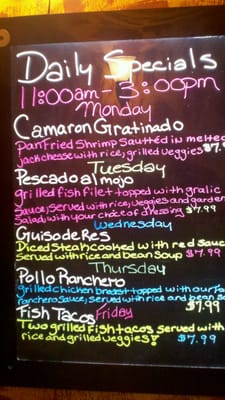 Daily Specials
11:00am-3:00pm
Monday
Camaron Gratinado
Pan Fried Shrimp Sautted in melted
Jackchesse with rice, grilled veggies $7.9
Tuesday
Pescado al mojo
grilled fish filet topped with gralic
Sauce, served with rice, veggies and garden
Salad with your choice of dressing $7.99
Wednesday
Guiso de Res
Diced Steak cooked with red Sauce
Served with rice and bean Soup $7.99
Thursday
Pollo Ranchero
grilled chicken breast topped with our
ranchero Sauce, served with rice and bean
$7.99
Fish Tacos Friday
Two grilled Fish tacos Served with
rice and grilled veggies! $7.99